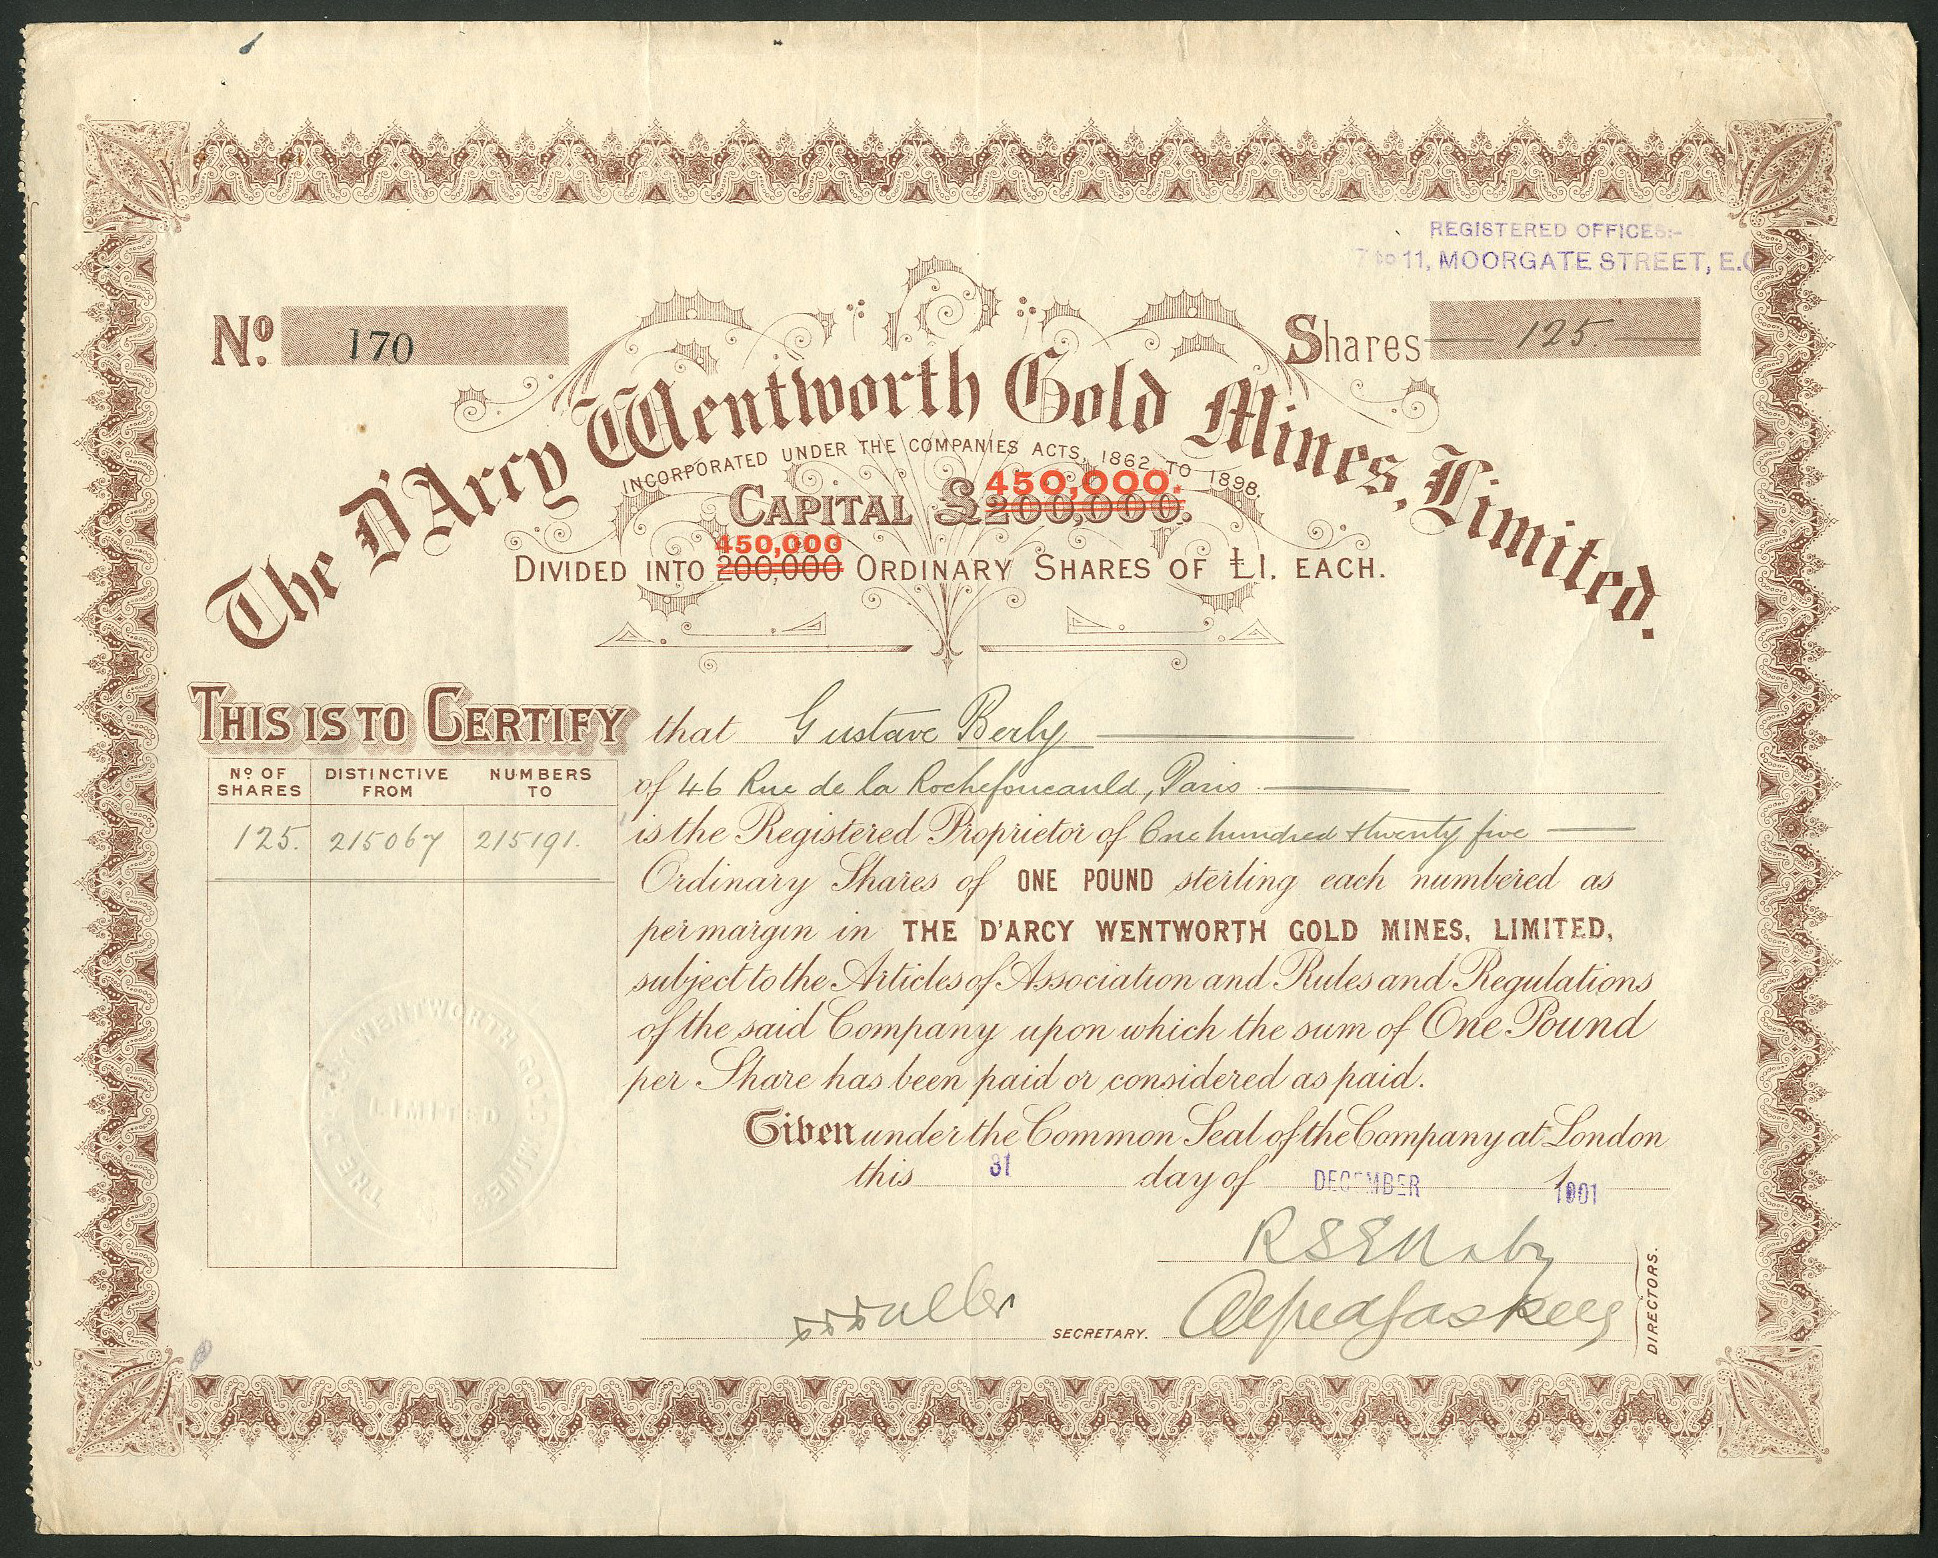 REGISTERED OFFICES:-
7 to 11, MOORGATE STREET, E.C
No. 170
Shares 125.
The D'Arcy Wentworth Gold Mines, Limited.
INCORPORATED UNDER THE COMPANIES ACTS, 1862 TO 1898.
450,000.
CAPITAL £200,000.
450,000
DIVIDED INTO 200,000 ORDINARY SHARES OF £1. EACH.
THIS IS TO CERTIFY that Gustave Berly
of 46 Rue de la Rochefoucauld, Paris
is the Registered Proprietor of One hundred & twenty five
Ordinary Shares of ONE POUND sterling each numbered as
per margin in THE D'ARCY WENTWORTH GOLD MINES, LIMITED,
subject to the Articles of Association and Rules and Regulations
of the said Company upon which the sum of One Pound
per Share has been paid or considered as paid.
Given under the Common Seal of the Company at London
this 31 day of DECEMBER 1901
No OF SHARES DISTINCTIVE FROM NUMBERS TO
125. 215067 215191.
THE D'ARCY WENTWORTH GOLD MINES
LIMITED
SECRETARY.
Alfred Gaskell
DIRECTORS.